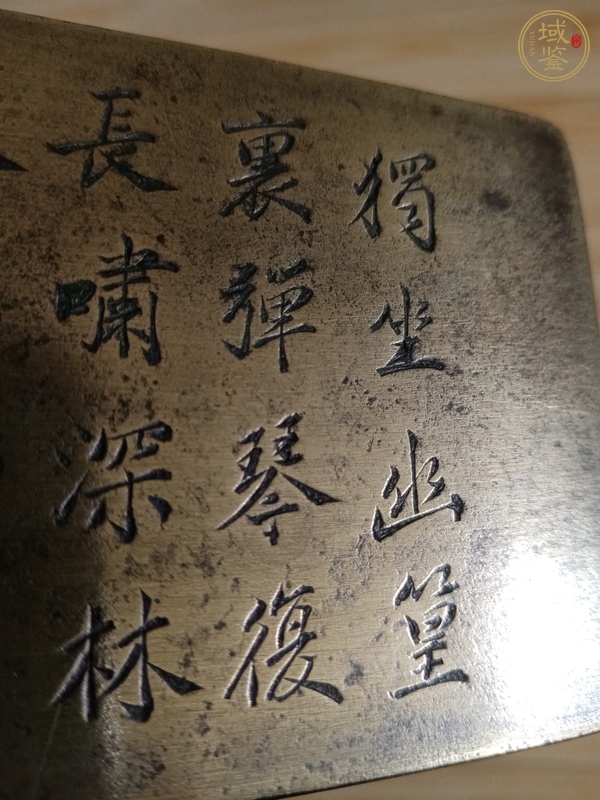 獨坐幽篁
裏彈琴復
長嘯深林
域鑒